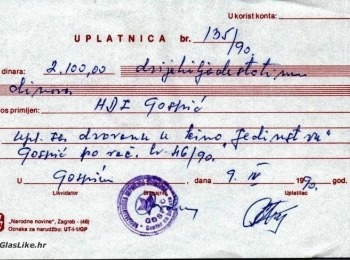 U korist konta:
UPLATNICA br. 135/90.
dinara: 2.100,00 dvijehiljadestotinu
dinara
os primljen: HDZ Gospić
upl. za dvoranu u kino "Jedinstvu"
Gospić po rač. br-46/90.
U Gospiću, dana 9. IV 1990.
Likvidator Uplatilac
GOSPIĆ
"Narodne novine", Zagreb - (48)
Oznaka za narudžbu: UT-I-1/GP
GlasLike.hr